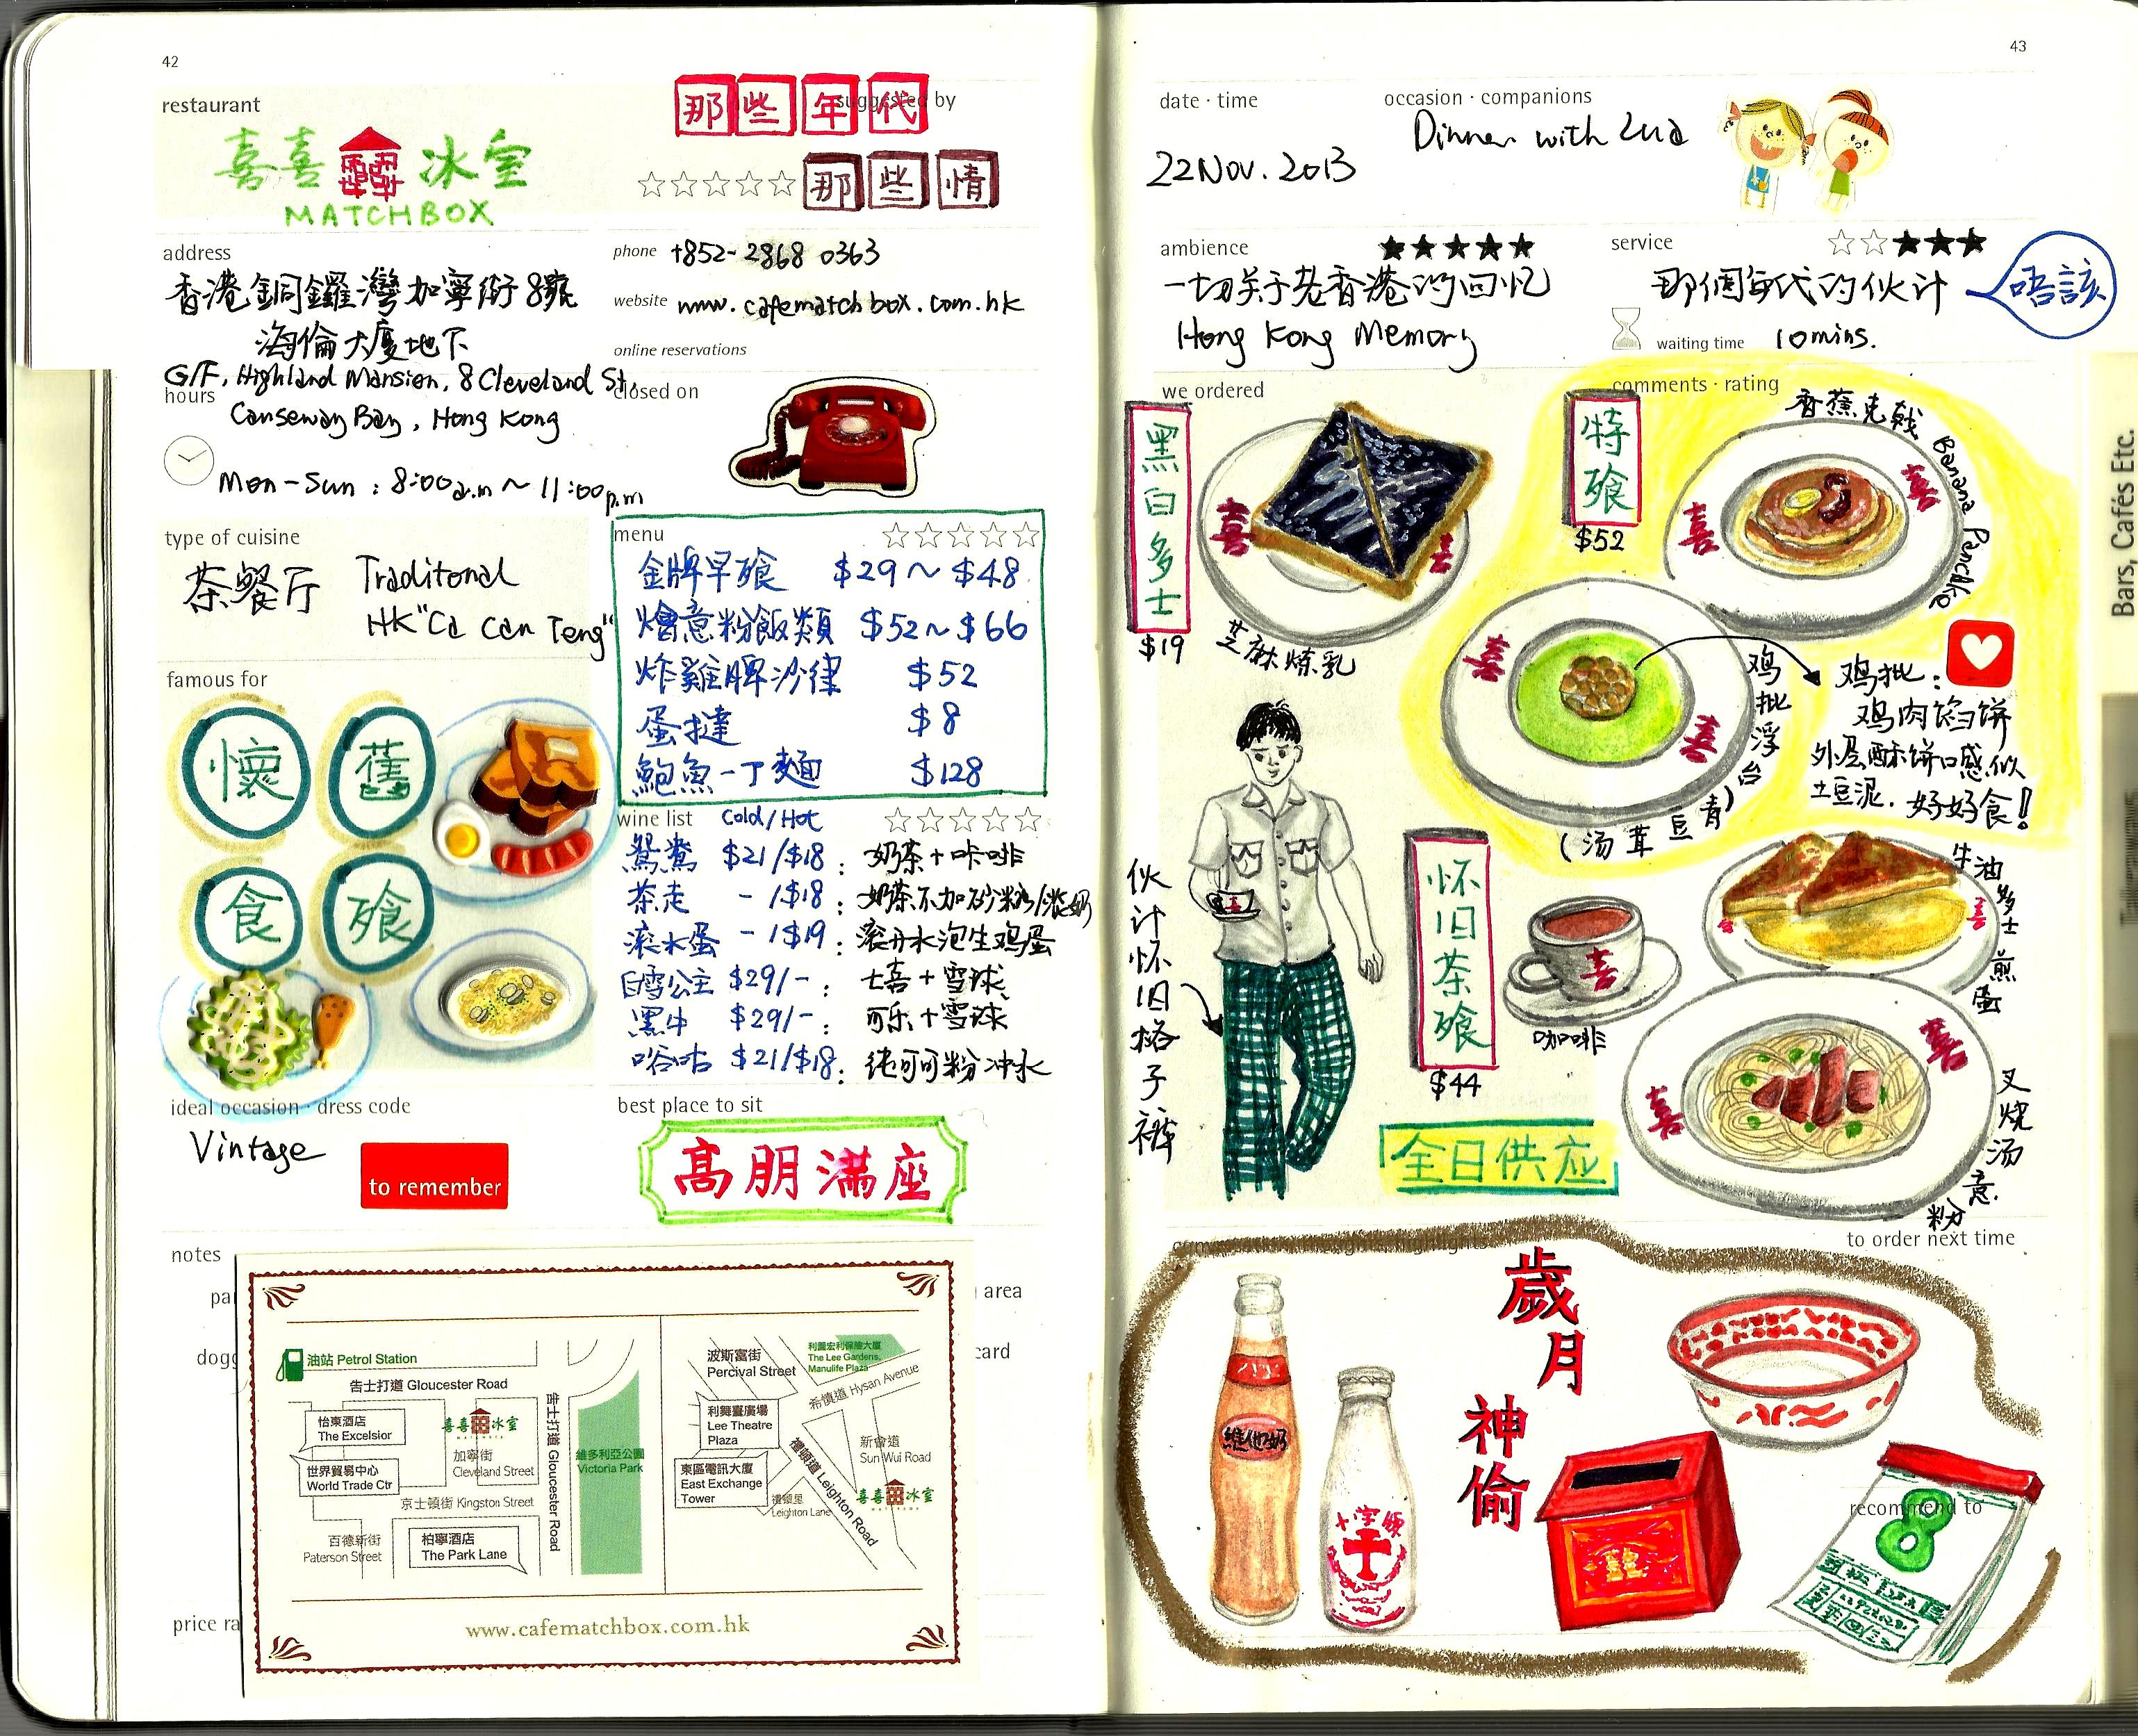 42
restaurant
suggested by
那些年代
那些情
喜喜 冰室
MATCHBOX
address
香港銅鑼灣加寧街8號
海倫大廈地下
G/F, Highland Mansion, 8 Cleveland St,
Causeway Bay, Hong Kong
phone +852-2868 0363
website www.cafematchbox.com.hk
online reservations
hours
Mon-Sun: 8:00a.m ~ 11:00p.m
closed on
type of cuisine
茶餐厅 Traditonal
HK "Ca Can Teng"
menu
金牌早飱 $29~$48
燴意粉飯類 $52~$66
炸雞髀沙律 $52
蛋撻 $8
鮑魚一丁麵 $128
famous for
懷舊
食飱
wine list Cold/Hot
鴛鴦 $21/$18: 奶茶+咖啡
茶走 -/$18: 奶茶不加砂糖/淡奶
滚水蛋 -/$19: 滚开水泡生鸡蛋
白雪公主 $29/-: 七喜+雪球
黑牛 $29/-: 可乐+雪球
唂咕 $21/$18: 纯可可粉冲水
ideal occasion · dress code
Vintage
to remember
best place to sit
高朋滿座
notes
area
card
price ra
油站 Petrol Station
告士打道 Gloucester Road
怡東酒店
The Excelsior
喜喜冰室
加寧街
Cleveland Street
世界貿易中心
World Trade Ctr
京士頓街 Kingston Street
百德新街
Paterson Street
柏寧酒店
The Park Lane
告士打道 Gloucester Road
維多利亞公園
Victoria Park
波斯富街
Percival Street
利園宏利保險大廈
The Lee Gardens,
Manulife Plaza
希慎道 Hysan Avenue
利舞臺廣場
Lee Theatre
Plaza
禮頓道 Leighton Road
新會道
Sun Wui Road
東區電訊大廈
East Exchange
Tower
禮頓里
Leighton Lane
喜喜冰室
www.cafematchbox.com.hk
43
date · time
22 Nov. 2013
occasion · companions
Dinner with
ambience
一切关于老香港的回忆
Hong Kong Memory
service
那個年代的伙计
唔該
waiting time 10 mins.
we ordered
黑白多士
$19
芝麻炼乳
comments · rating
特飱
$52
香蕉克戟 Banana Pancake
喜
喜
喜
喜
喜
喜
鸡批浮台
(汤茸豆青)
鸡批:
鸡肉馅饼
外层酥饼口感似
土豆泥. 好好食!
伙计怀旧格子裤
怀旧茶飱
$44
喜
咖啡
牛油多士 煎蛋
喜
喜
喜
喜
叉烧汤意粉
全日供应
to order next time
歲月
神偷
維他奶
十字牌
recommend to
8
Bars, Cafés Etc.